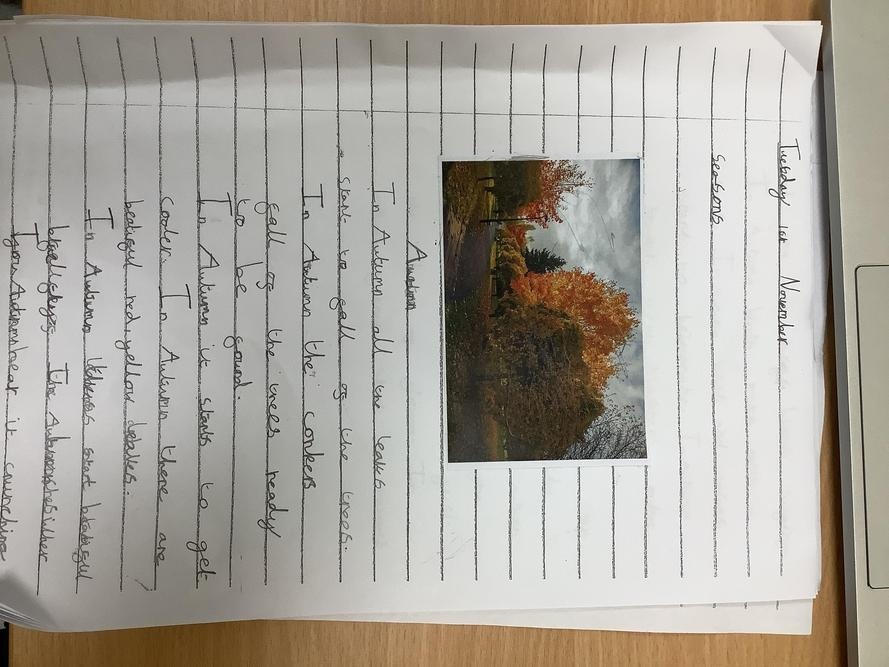 Tuesday 1st November
seasons
Autumn
In Autumn all the leaves
start to fall of the trees.
In Autumn the conkers
fall of the trees ready
to be found.
In Autumn it starts to get
Cooler. In Autumn there are
beatiful red, yellow
In Autumn start
The
it crunching